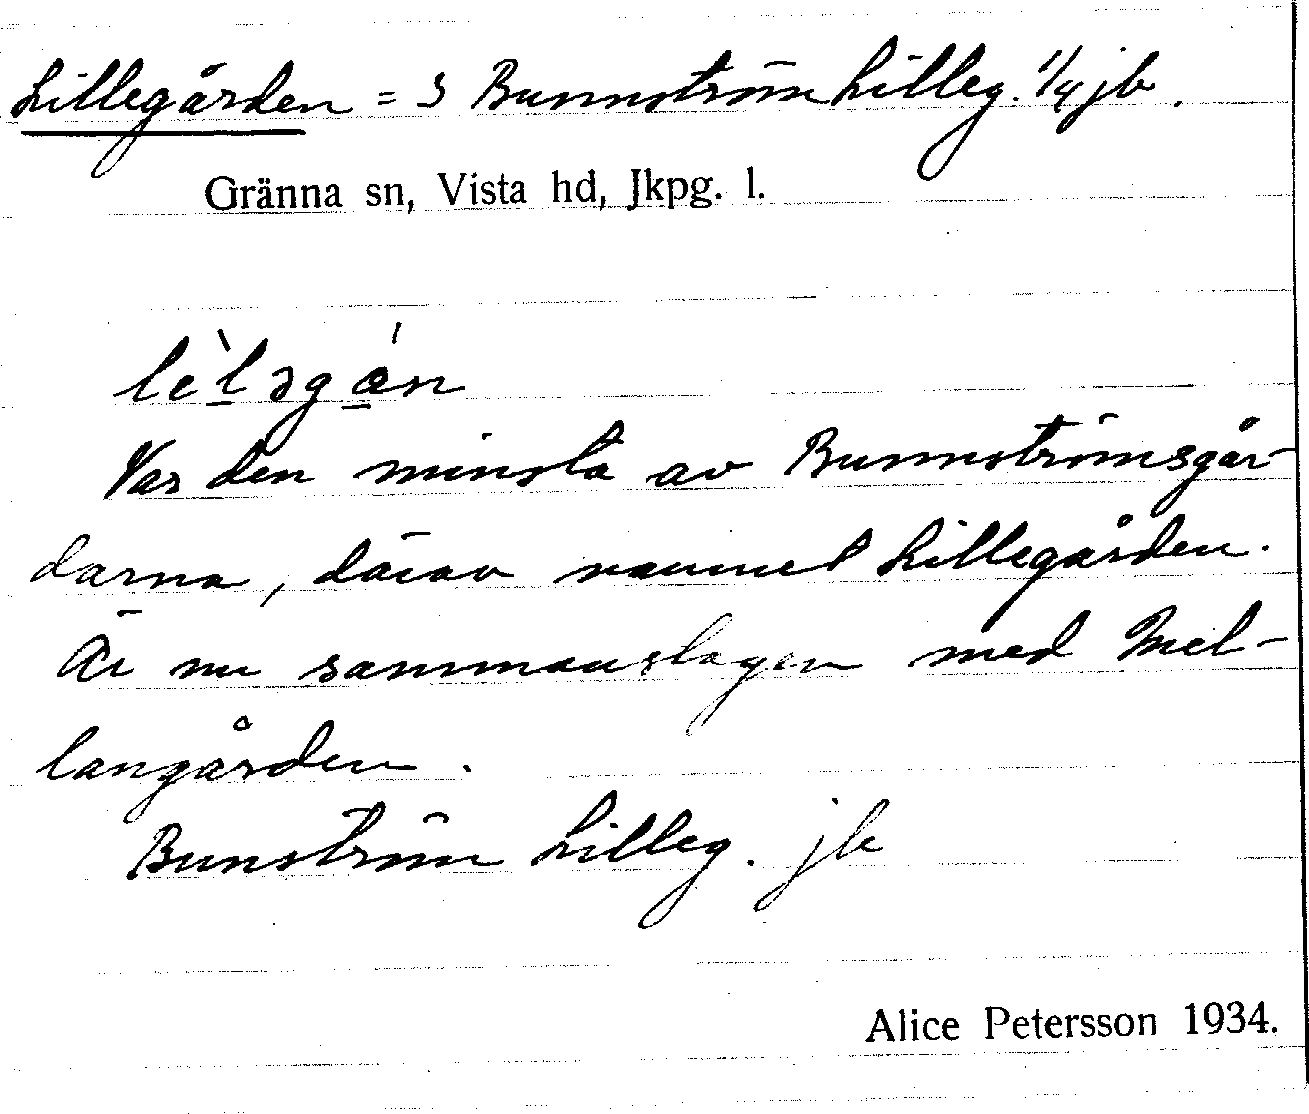 Lillegården = S Bunnström Lilleg. 1/4 jb.
Gränna sn, Vista hd, Jkpg. l.
lèləgán
Var den minsta av Bunnströmsgår-
darna, därav namnet Lillegården.
Är nu sammanslagen med Mel-
langården.
Bunström Lilleg. jb
Alice Petersson 1934.